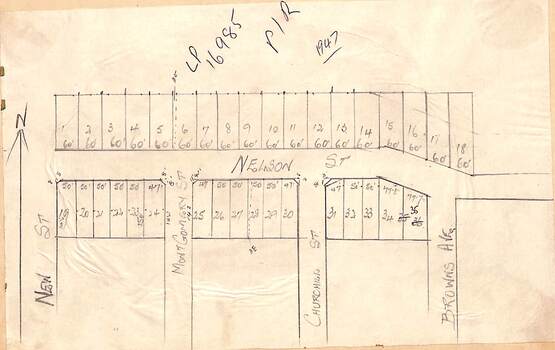 LP
16985
P/R
1947
1 2 3 4 5 6 7 8 9 10 11 12 13 14 15 16 17 18
60' 60' 60' 60' 60' 60' 60' 60' 60' 60' 60' 60' 60' 60' 60' 60' 60' 60'
NELSON ST
50' 50' 50' 50' 47' 47' 50' 50' 50' 50' 50' 47' 50' 50' 77.1 77.1
20 21 22 24 25 26 27 28 29 30 31 32 33 34 35
NEW ST
MONTGOMERY ST
CHURCHILL ST
BROWNS AVE